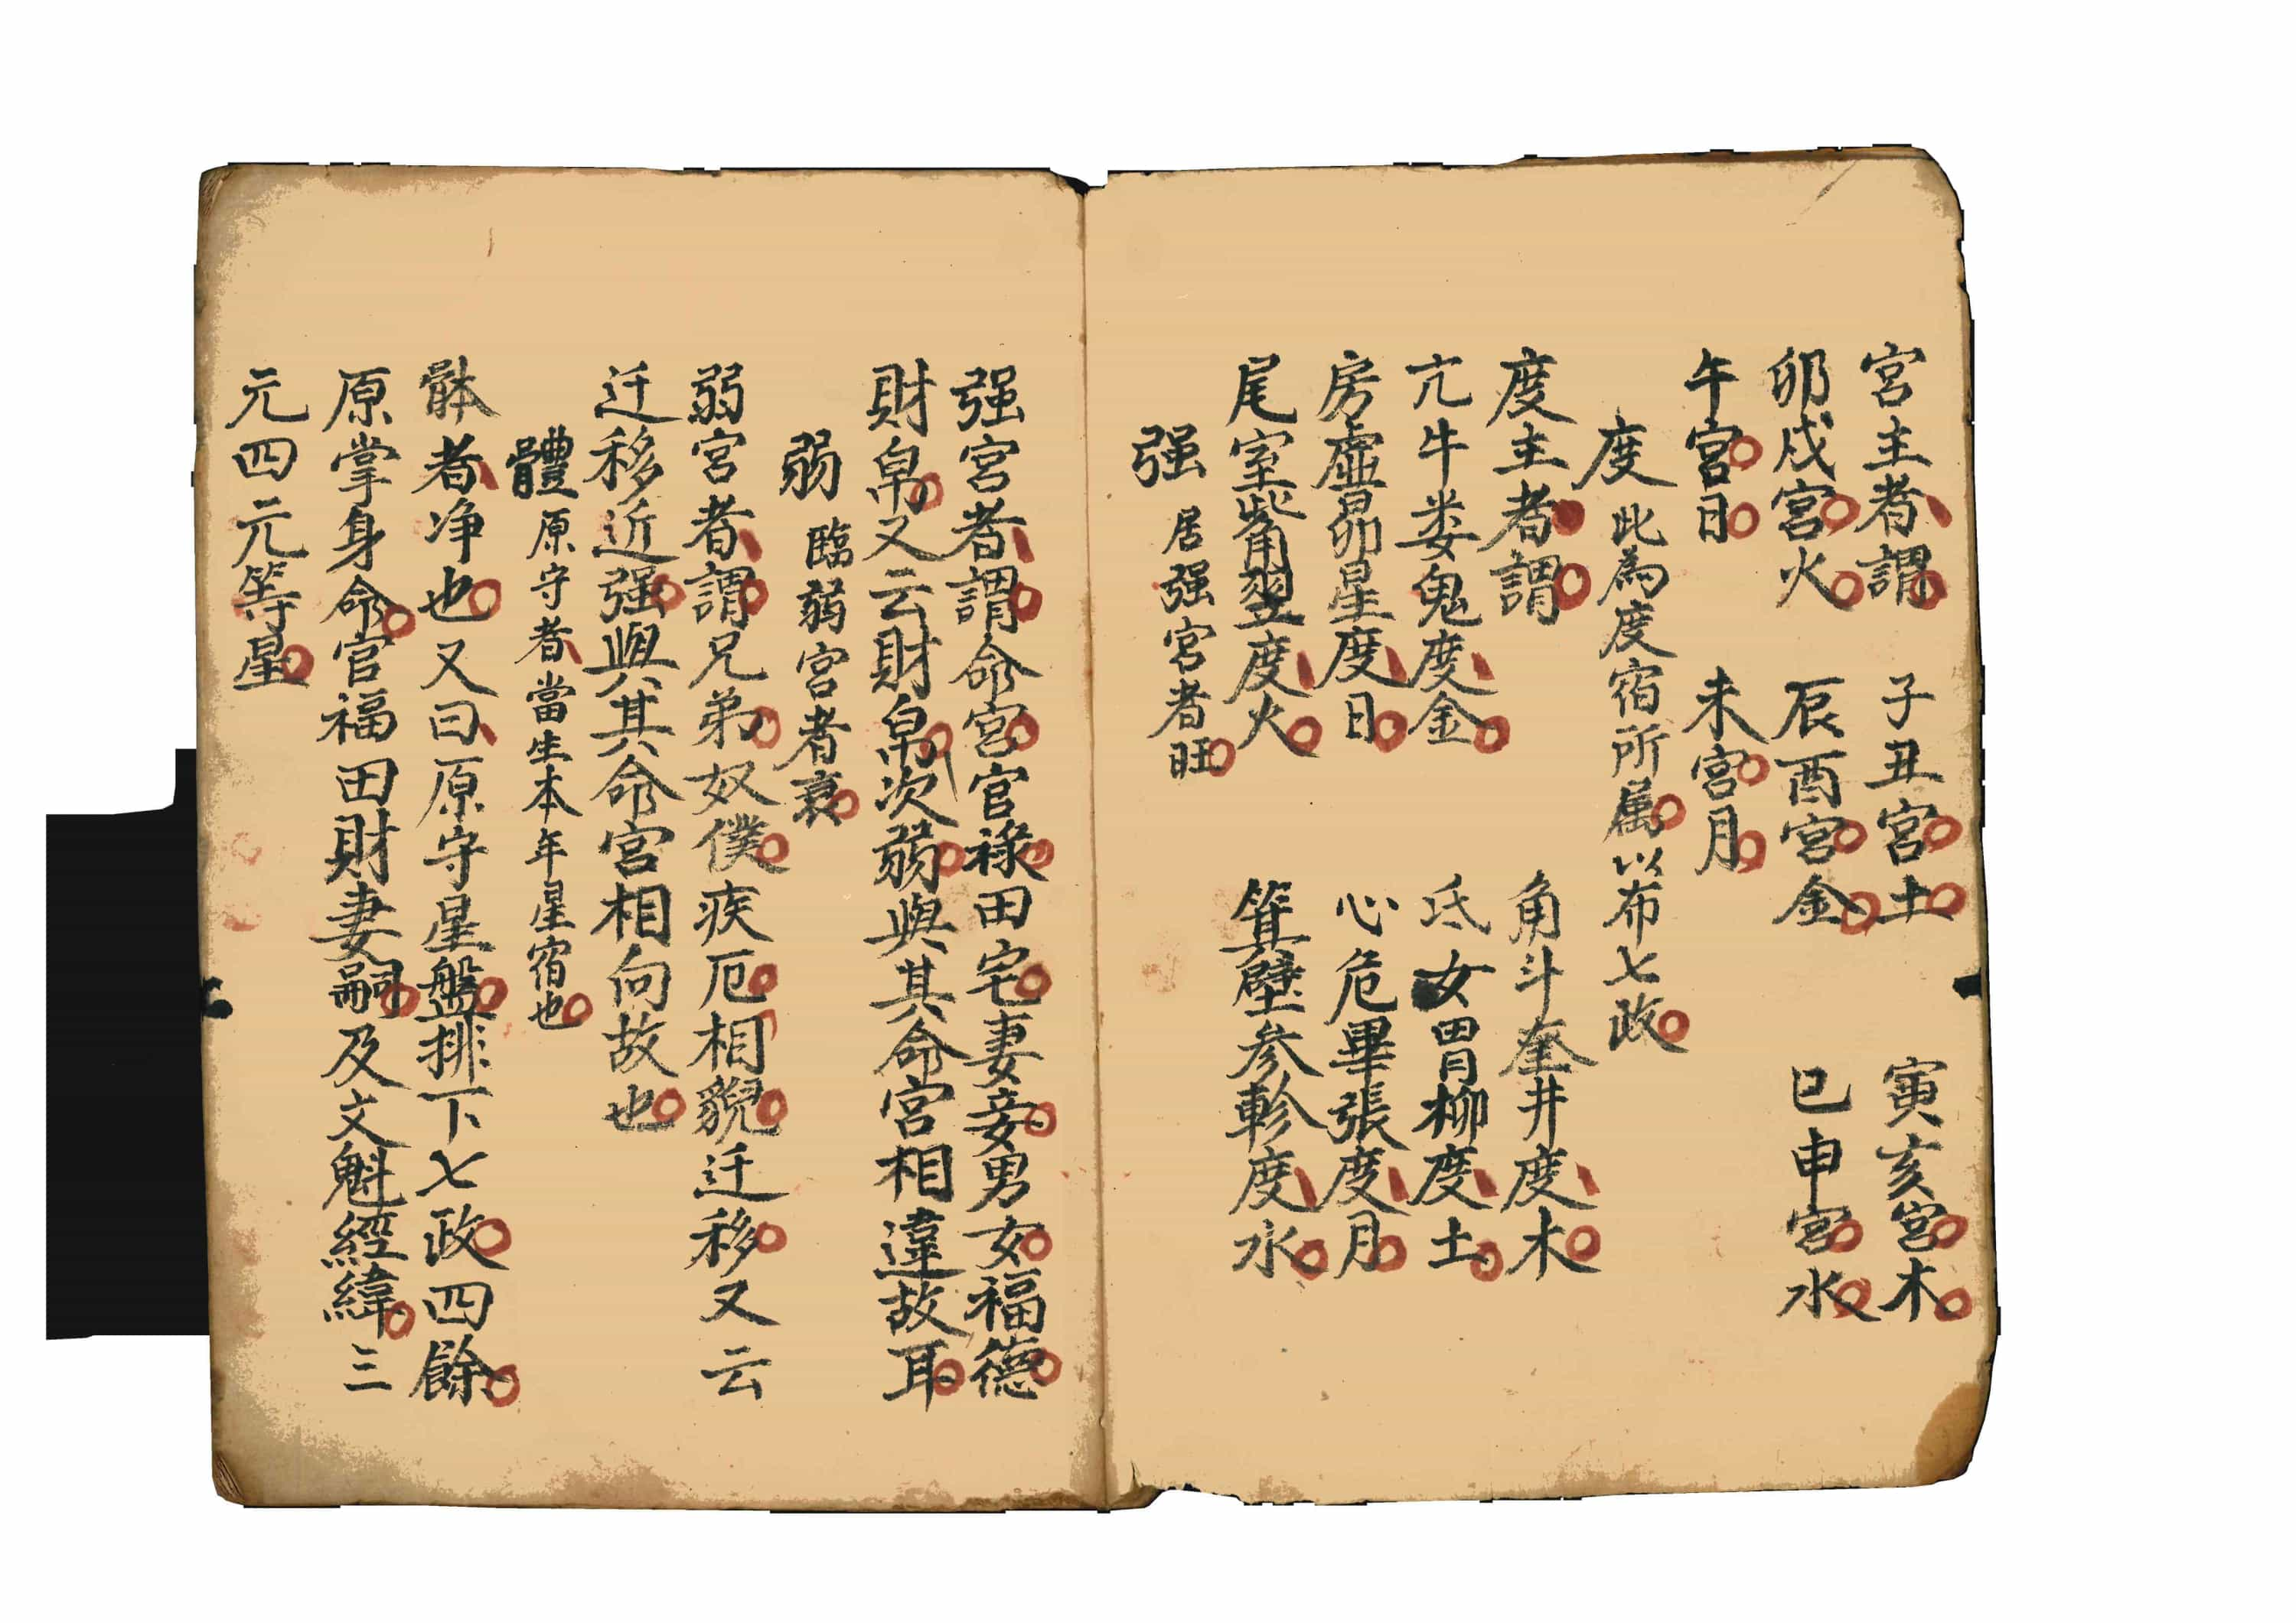 宮主者謂 子丑宮土 寅亥宮木
卯戌宮火 辰酉宮金 巳申宮水
午宮日 未宮月
度 此為度宿所属以布七政
度主者謂 角斗奎井度木
亢牛娄鬼度金 氐女胃柳度土
房虛昴星度日 心危畢張度月
尾室觜翌度火 箕壁参軫度水
强 居强宮者旺
强宮者謂命宮官祿田宅妻妾男女福德
財帛又云財帛次弱與其命宮相違故耳
弱 臨弱宮者衰
弱宮者謂兄弟奴僕疾厄相貌迁移又云
迁移近强與其命宮相向故也
體 原守者當生本年星宿也
骵者净也又曰原守星盤排下七政四餘
原掌身命官福田財妻嗣及文魁經緯三
元四元等星